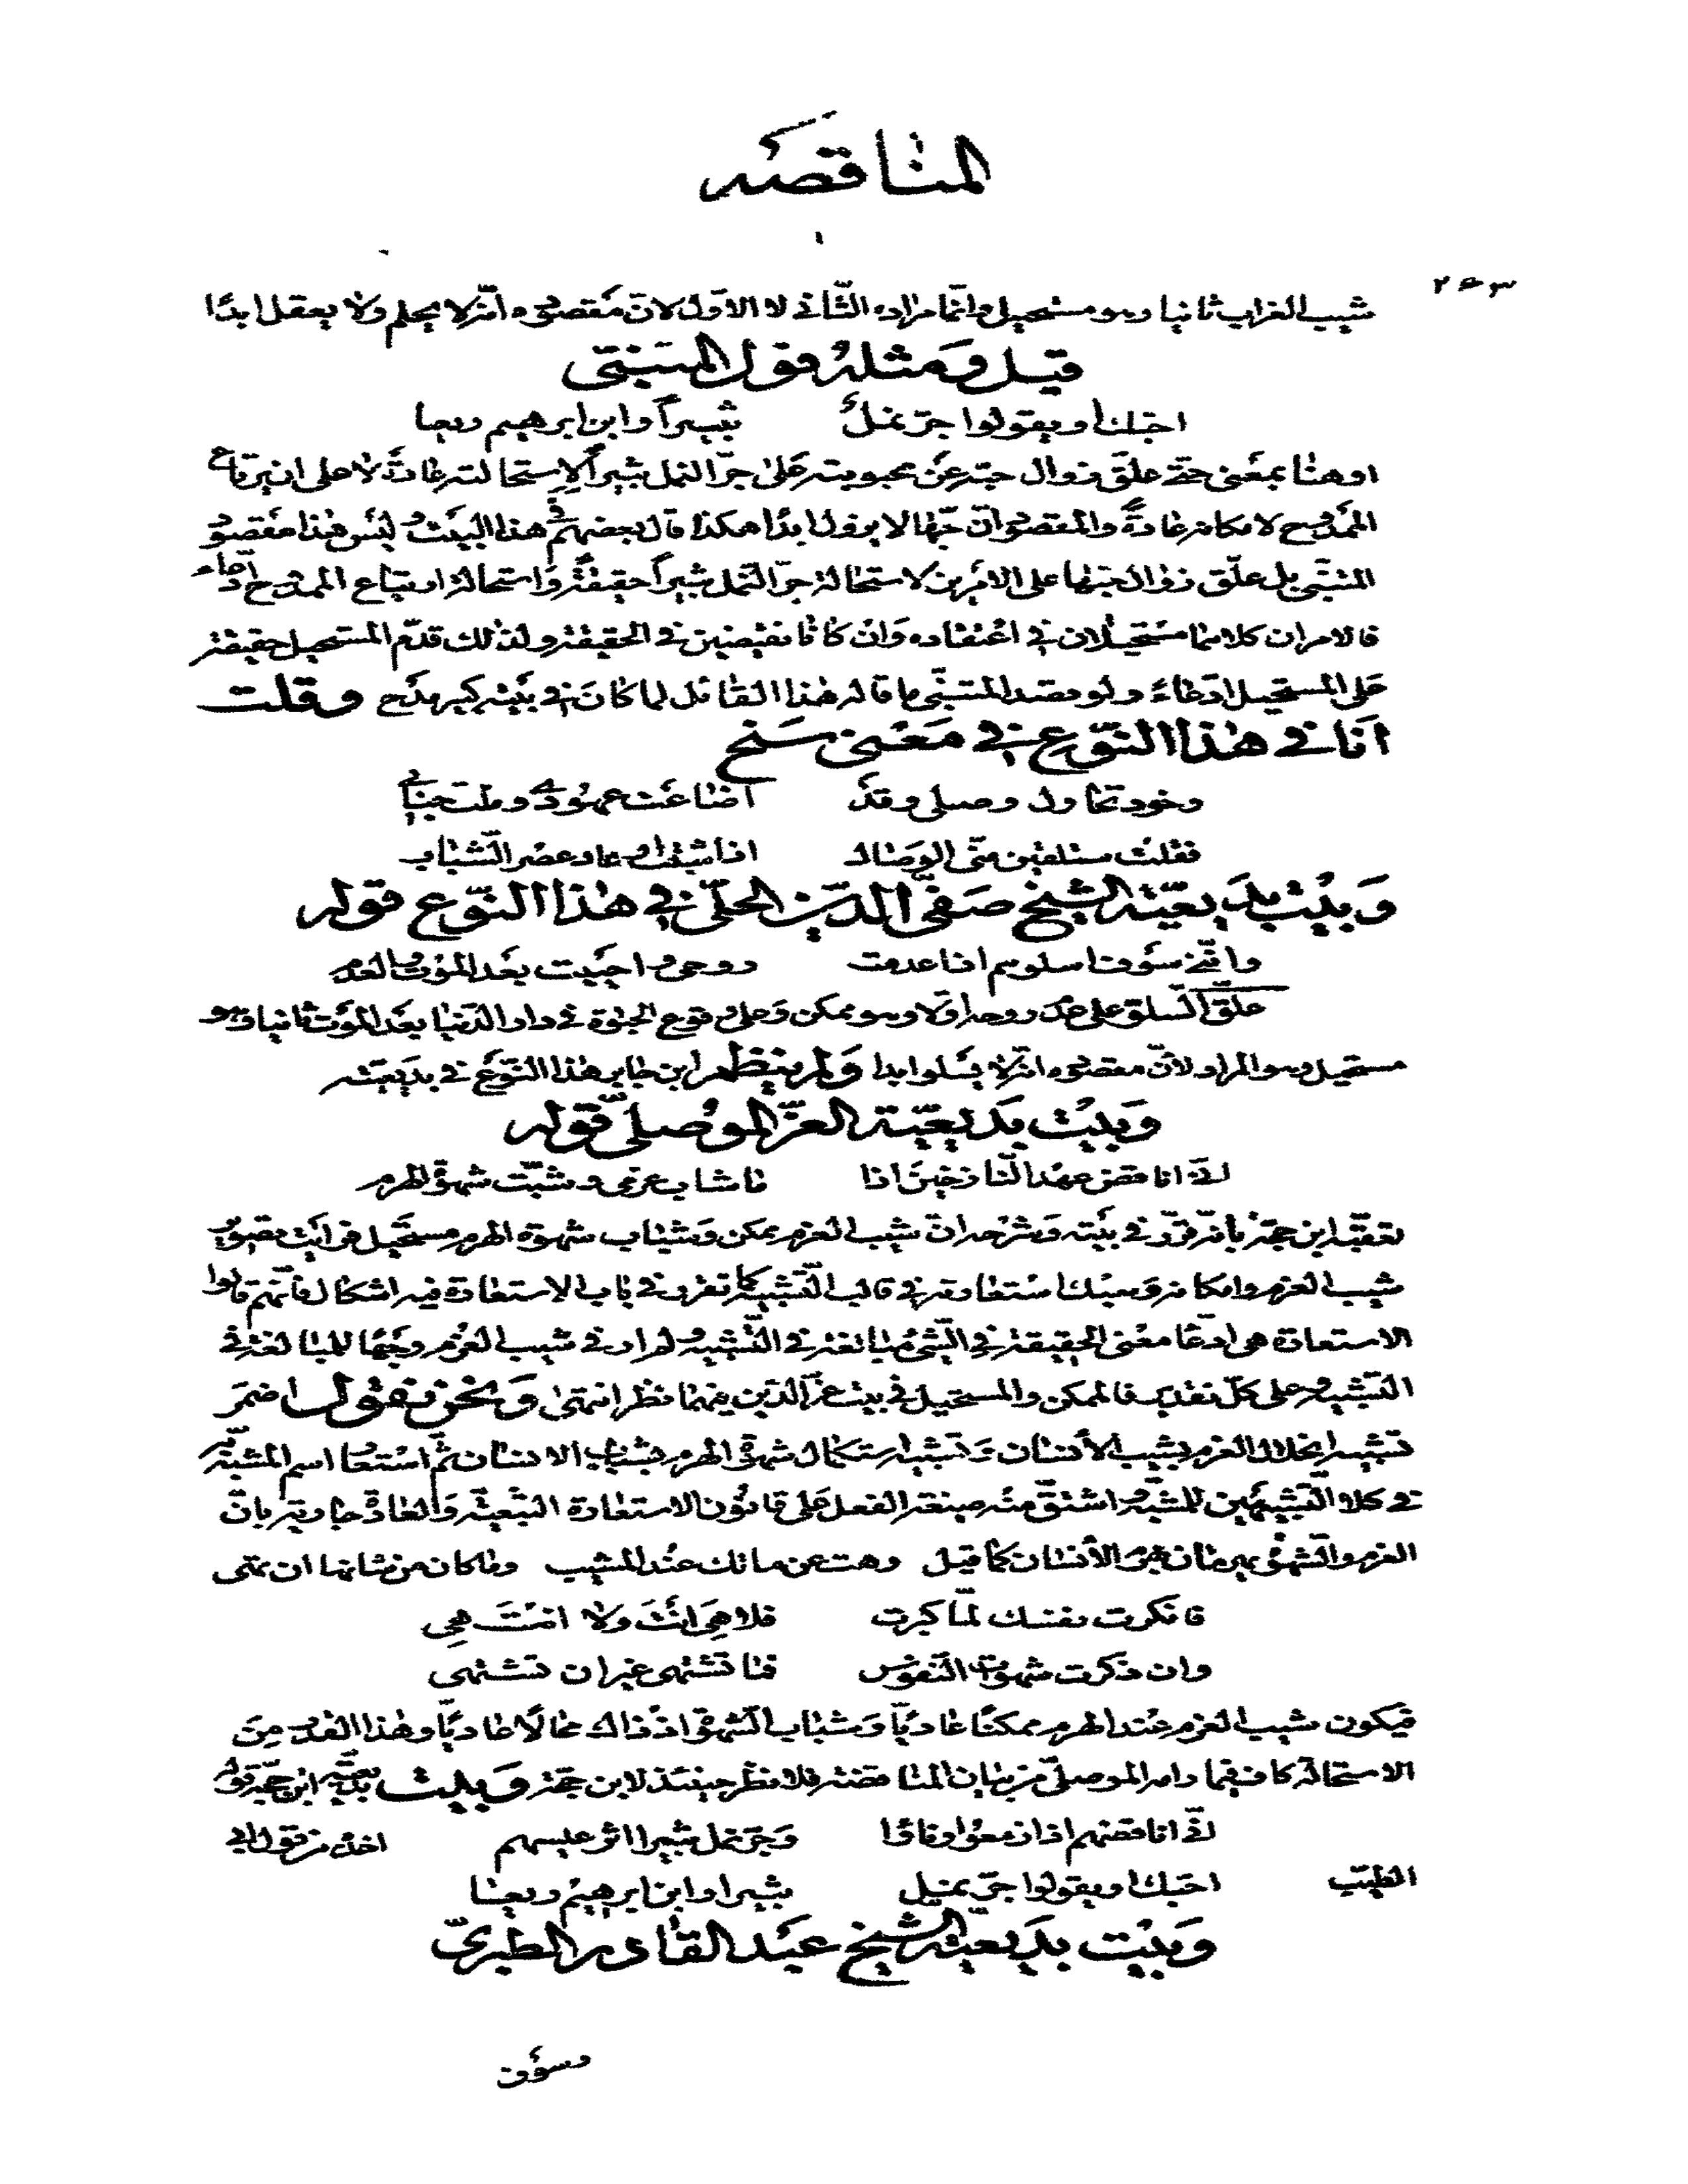 المناقضه
٢٤٣
شيب الغراب ثانيا وهو مستحيل وانما مراده الثاني لا الاول لان مقصوده انه لا يحلم ولا يعقل ابدا
قيل ومثله قول المتنبي
احبك او يقولوا جر نمل ثبيرا وابن ابرهيم ريعا
او هنا بمعنى حتى علق زوال حبه عن محبوبته على جر النمل ثبيرا لاستحالته عادة لا على ان يرتاع
الممدوح لامكانه عادة والمقصود ان حبها لا يزول ابدا هكذا قال بعضهم في هذا البيت وليس هذا مقصود
المتنبي بل علق زوال حبها على الامرين لاستحالة جر النمل ثبيرا حقيقة واستحالة ارتياع الممدوح ادعاء
فالامران كلاهما مستحيلان في اعتقاده وان كانا نقيضين في الحقيقة ولذلك قدم المستحيل حقيقة
على المستحيل ادعاء ولو قصد المتنبي ما قاله هذا القائل لما كان في بيته كبير مدح وقلت
انا في هذا النوع في معنى سنح
وخود تحاول وصلي وقد اضاعت عهودي وملت جنابي
فقلت ستلقين مني الوصال اذا شبت او عاد عصر الشباب
وبيت بديعية الشيخ صفي الدين الحلي في هذا النوع قوله
وانني سوف اسلوهم اذا عدمت روحي واحييت بعد الموت والعدم
علق السلو على عدم روحه اولا وهو ممكن وعلى وقوع الحيوة في دار الدنيا بعد الموت ثانيا وهو
مستحيل وهو المراد لان مقصوده انه لا يسلو ابدا ولم ينظم ابن جابر هذا النوع في بديعيته
وبيت بديعية العز الموصلي قوله
اني اناقض عهد النازحين اذا ما شاب عزمي وشبت شهوة الهرم
تعقبه ابن حجة بانه قرر في بيته وشرحه ان شيب العزم ممكن وشباب شهوة الهرم مستحيل فمن اين يتصور
شيب العزم وامكانه وهبك استعارته في قالب التشبيه كما تقرر في باب الاستعارة فيه اشكال فانهم قالوا
الاستعارة هي ادعا معنى الحقيقة في الشئ مبالغة في التشبيه ولم ار في شيب العزم وجها للمبالغة في
التشبيه على كل تقدير فالممكن والمستحيل في بيت عز الدين فيهما نظر انتهى ونحن نقول اضمر
تشبيه انحلال العزم بشيب الانسان وتشبيه استكمال شهوة الهرم بشباب الانسان ثم استعار اسم المشبه به
في كلا التشبيهين للمشبه واشتق منه صيغة الفعل على قانون الاستعارة التبعية والعادة جارية بان
العزم والشهوة يهرمان بهرم الانسان كما قيل وهت عزماتك عند المشيب وما كان من شانها ان تهى
فانكرت نفسك لما كبرت فلا هي انت ولا انت هي
وان ذكرت شهوات النفوس فما تشتهي غير ان تشتهى
فيكون شيب العزم عند الهرم ممكنا عاديا وشباب الشهوة اذ ذاك محالا عاديا وهذا القدر من
الاستحالة كاف فيما رامه الموصلي من بيان المناقضة فلا نظر حينئذ لابن حجة وبيت بديعية ابن حجة قوله
اني اناقضهم ان ازمعوا وناوا وجر نمل ثبيرا اثر عيسهم اخذه من قول ابي
الطيب احبك او يقولوا جر نميل ثبيرا او ابن ابرهيم ريعا
وبيت بديعية الشيخ عبد القادر الطبري
وسوف